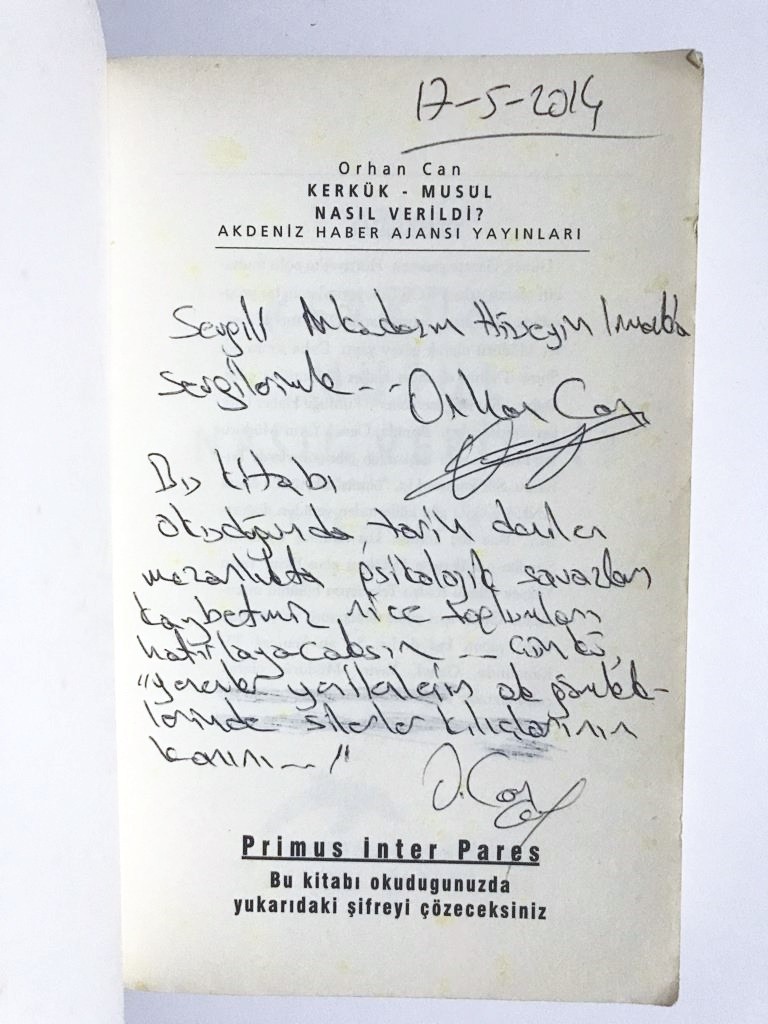 17-5-2014
Orhan Can
KERKÜK - MUSUL
NASIL VERİLDİ?
AKDENİZ HABER AJANSI YAYINLARI
Sevgili Arkadaşım Hüseyin
sevgilerimle - -
Orhan Can
Bu kitabı
okuduğunda, tarih denilen
mezarlıkta psikolojik savaşları
kaybetmiş, nice toplumları
hatırlayacaksın... çünkü,
"yenenler yenilenlerin ak pamuk-
larında silerler kılıçlarının
kanını..."
O. Can
Primus inter Pares
Bu kitabı okudugunuzda
yukarıdaki şifreyi çözeceksiniz